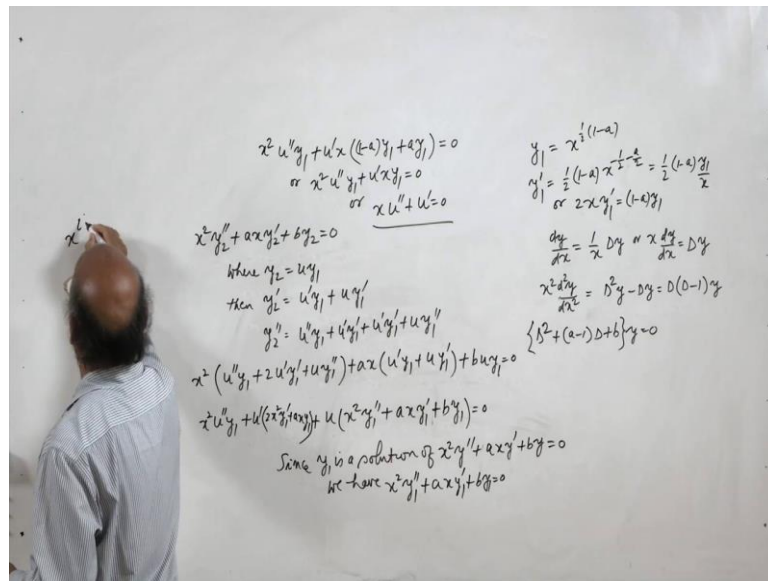 x² u″y₁ + u′x ((1-a)y₁ + ay₁) = 0
or x² u″y₁ + u′xy₁ = 0
or xu″ + u′ = 0
x² y₂″ + axy₂′ + by₂ = 0
where y₂ = uy₁
then y₂′ = u′y₁ + uy₁′
y₂″ = u″y₁ + u′y₁′ + u′y₁′ + uy₁″
x² (u″y₁ + 2u′y₁′ + uy₁″) + ax (u′y₁ + uy₁′) + buy₁ = 0
x² u″y₁ + u′(2x² y₁′ + axy₁) + u (x² y₁″ + axy₁′ + by₁) = 0
Since y₁ is a solution of x² y″ + axy′ + by = 0
we have x² y₁″ + axy₁′ + by = 0
y₁ = x^{½(1-a)}
y₁′ = ½(1-a) x^{-½-a/2} = ½ (1-a) y₁/x
or 2xy₁′ = (1-a)y₁
dy/dx = 1/x Dy or x dy/dx = Dy
x² d²y/dx² = D²y - Dy = D(D-1)y
{D² + (a-1)D + b}y = 0